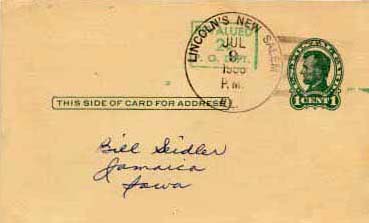 LINCOLN'S NEW SALEM
VALUED
P. O. DEPT.
JUL
9
P.M.
1 CENT 1
THIS SIDE OF CARD FOR ADDRESS
Bill Seidler
Jamaica
Iowa